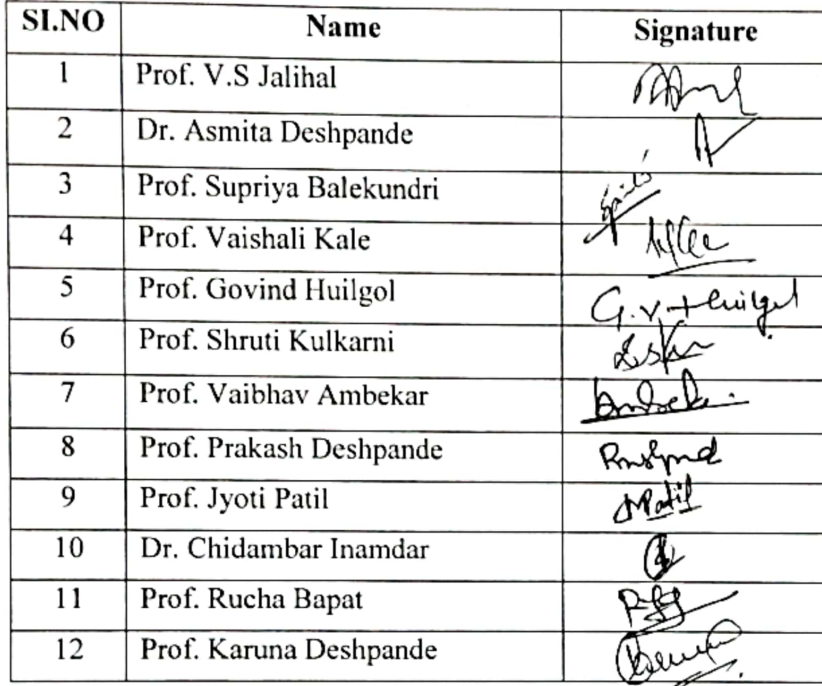 SI.NO Name Signature
1 Prof. V.S Jalihal
2 Dr. Asmita Deshpande
3 Prof. Supriya Balekundri
4 Prof. Vaishali Kale
5 Prof. Govind Huilgol G.V. Huilgol
6 Prof. Shruti Kulkarni
7 Prof. Vaibhav Ambekar
8 Prof. Prakash Deshpande
9 Prof. Jyoti Patil JPatil
10 Dr. Chidambar Inamdar
11 Prof. Rucha Bapat
12 Prof. Karuna Deshpande